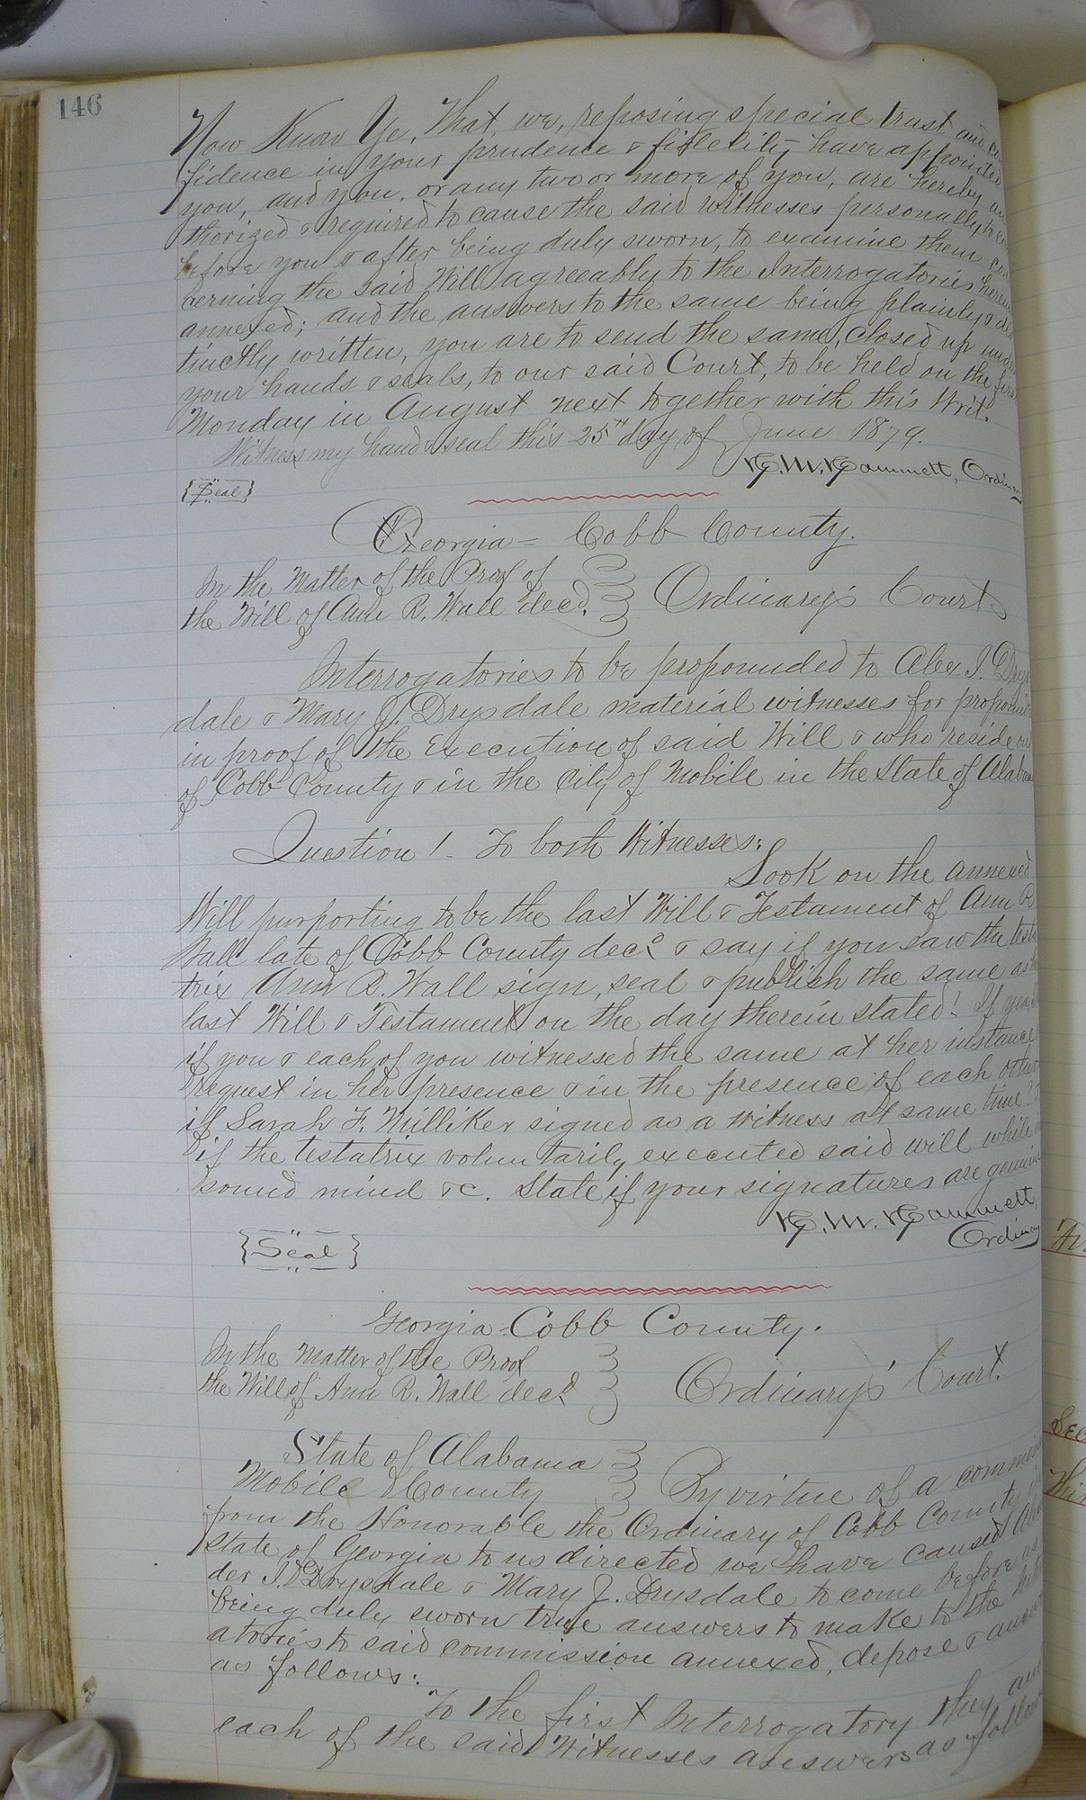 146
Now Know Ye, That, we, reposing special trust and con
fidence in your prudence & fidelity, have appointed
you, and you, or any two or more of you, are hereby au
thorized & required to cause the said witnesses personally to co
before you & after being duly sworn, to examine them con
cerning the said Will agreeably to the Interrogatories hereun
annexed; and the answers to the same being plainly & dis
tinctly written, you are to send the same, closed up under
your hands & seals, to our said Court, to be held on the first
Monday in August next together with this Writ.
Witness my hand & seal this 25th day of June 1879.
H. M. Hammett, Ordinary
{Seal}
Georgia - Cobb County.
In the Matter of the Proof of
the Will of Ann R. Wall decd. Ordinary's Court
Interrogatories to be propounded to Alex I. Drys
dale & Mary J. Drysdale material witnesses for propoun
in proof of the Execution of said Will & who reside out
of Cobb County & in the City of Mobile in the State of Alabama
Question 1 - To both Witnesses:
Look on the annexed
Will purporting to be the last Will & Testament of Ann R
Wall late of Cobb County decd. & say if you saw the testa
trix Ann R. Wall sign, seal & publish the same as
last Will & Testament on the day therein stated! If yea,
if you & each of you witnessed the same at her instance
& request in her presence & in the presence of each other
if Sarah F. Milliker signed as a witness at same time?
& if the testatrix voluntarily executed said will while
sound mind &c. State if your signatures are genuine
H. M. Hammett,
Ordinary
{Seal}
Georgia - Cobb County.
In the Matter of the Proof
the Will of Ann R. Wall decd. Ordinary's Court.
State of Alabama
Mobile County By virtue of a commis
from the Honorable the Ordinary of Cobb County
State of Georgia to us directed we have caused Alex
der I. Drysdale & Mary J. Drysdale to come before us
being duly sworn true answers to make to the
atories to said commission annexed, depose & answer
as follows:
To the first Interrogatory they and
each of the said Witnesses answers as follows